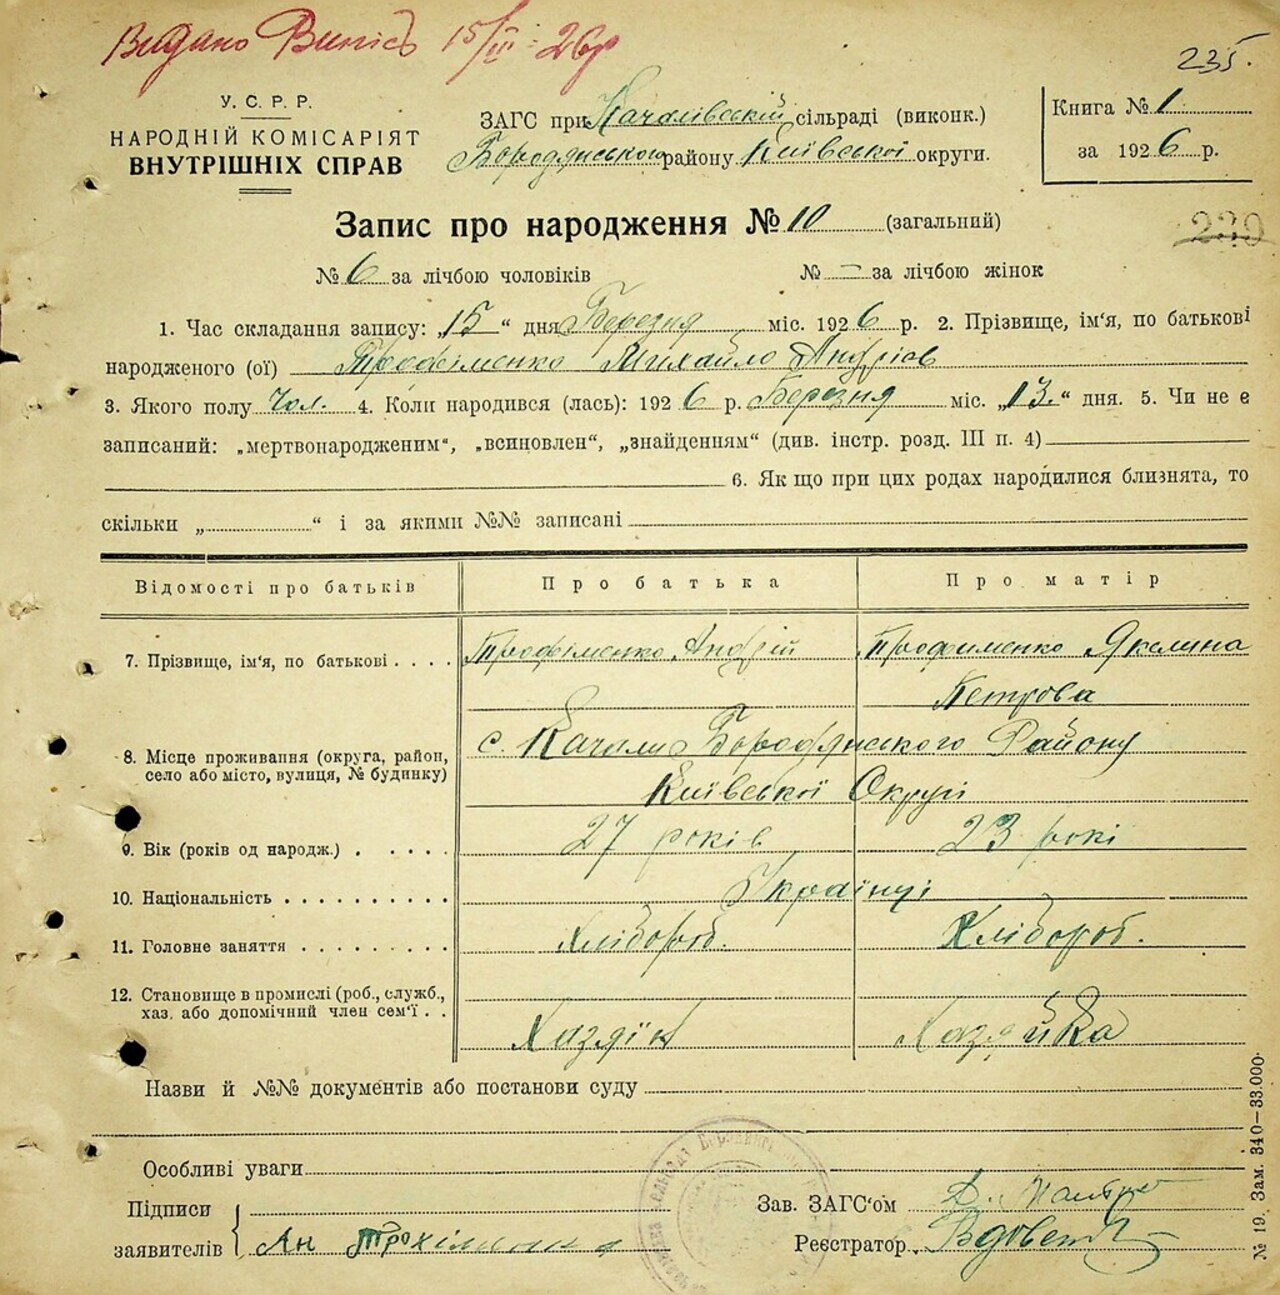 Видано Випісь 15/III-26р
235.
У.С.Р.Р.
НАРОДНІЙ КОМІСАРІЯТ
ВНУТРІШНІХ СПРАВ
ЗАГС при Качалівській сільраді (виконк.)
Бородянського району Київської округи.
Книга № 1
за 1926 р.
Запис про народження № 10 (загальний)
239
№ 6 за лічбою чоловіків № — за лічбою жінок
1. Час складання запису: „15“ дня Березня міс. 1926 р. 2. Прізвище, ім'я, по батькові
народженого (ої) Трофіменко Михайло Андрієв
3. Якого полу Чол. 4. Коли народився (лась): 1926 р. Березня міс. „13.“ дня. 5. Чи не є
записаний: „мертвонародженим“, „всиновлен“, „знайденням“ (див. інстр. розд. III п. 4)
6. Як що при цих родах народилися близнята, то
скільки „ “ і за якими №№ записані
Відомості про батьків Про батька Про матір
7. Прізвище, ім'я, по батькові . . . . Трофіменко Андрій Трофименко Якелина
Петрова
8. Місце проживання (округа, район, с. Качали Бородянського Району
село або місто, вулиця, № будинку) Київської Округі
9. Вік (років од народж.) . . . . . 27 років 23 рокі
10. Національність . . . . . . . . . . Українці
11. Головне заняття . . . . . . . . . Хлібороб. Хлібороб.
12. Становище в промислі (роб., служб.,
хаз. або допомічний член сем'ї . . Хазяїн Хазяйка
Назви й №№ документів або постанови суду
Особливі уваги
Підписи Зав. ЗАГС'ом
заявителів Ан Реєстратор Вдовен
№ 19. Зам. 340—33.000.